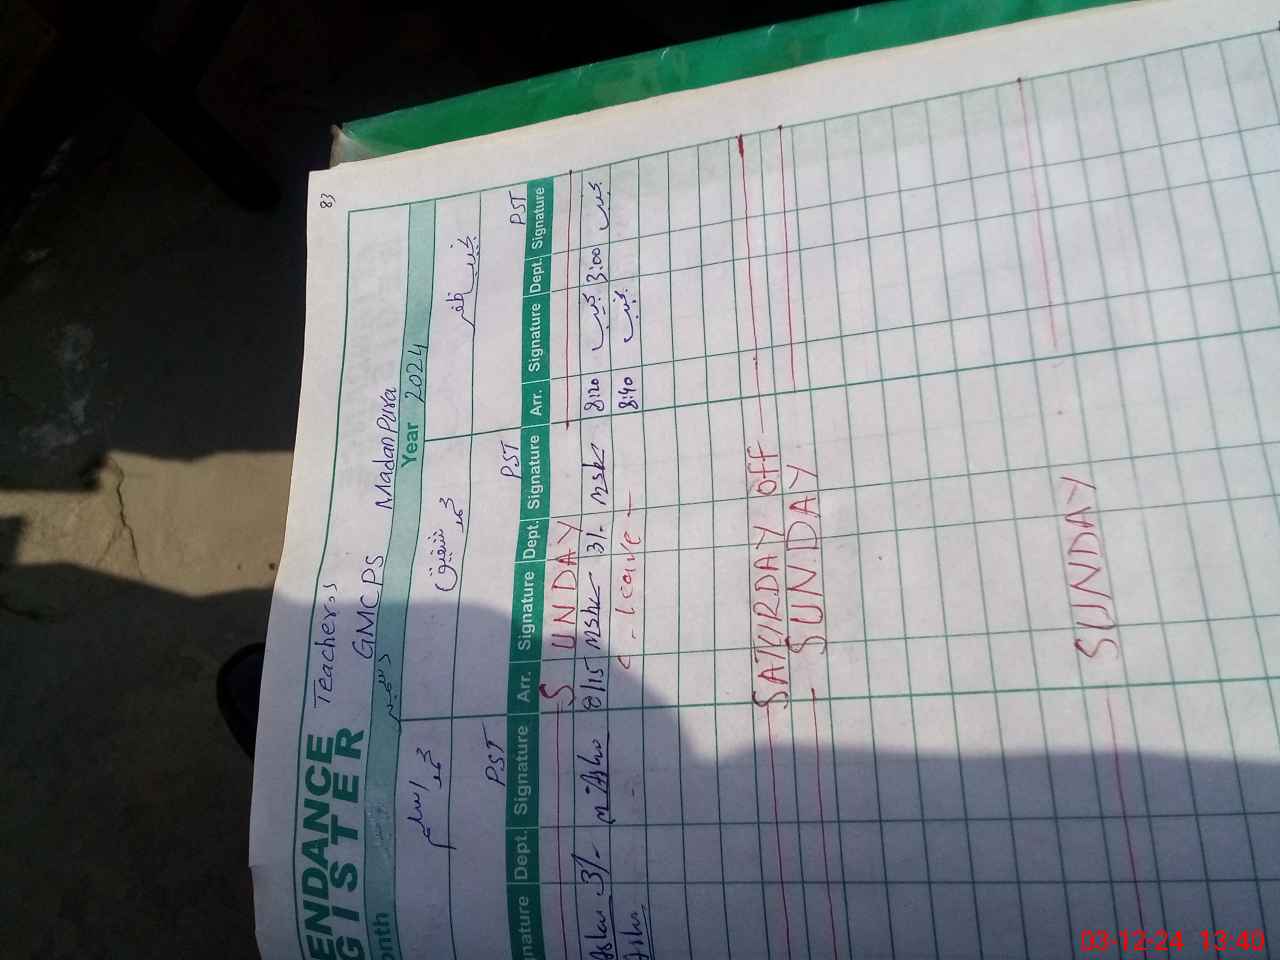 83
ENDANCE Teachers
GISTER GMCPS Madan Pura
onth دسمبر Year 2024
محمد اسلم محمد شفیق
PST PST PST
nature Dept. Signature Arr. Signature Dept. Signature Arr. Signature Dept. Signature
SUNDAY
3/- 8/15 3/- 8:20 3:00
- Leave - 8:40
SATURDAY OFF
SUNDAY
SUNDAY
03-12-24 13:40